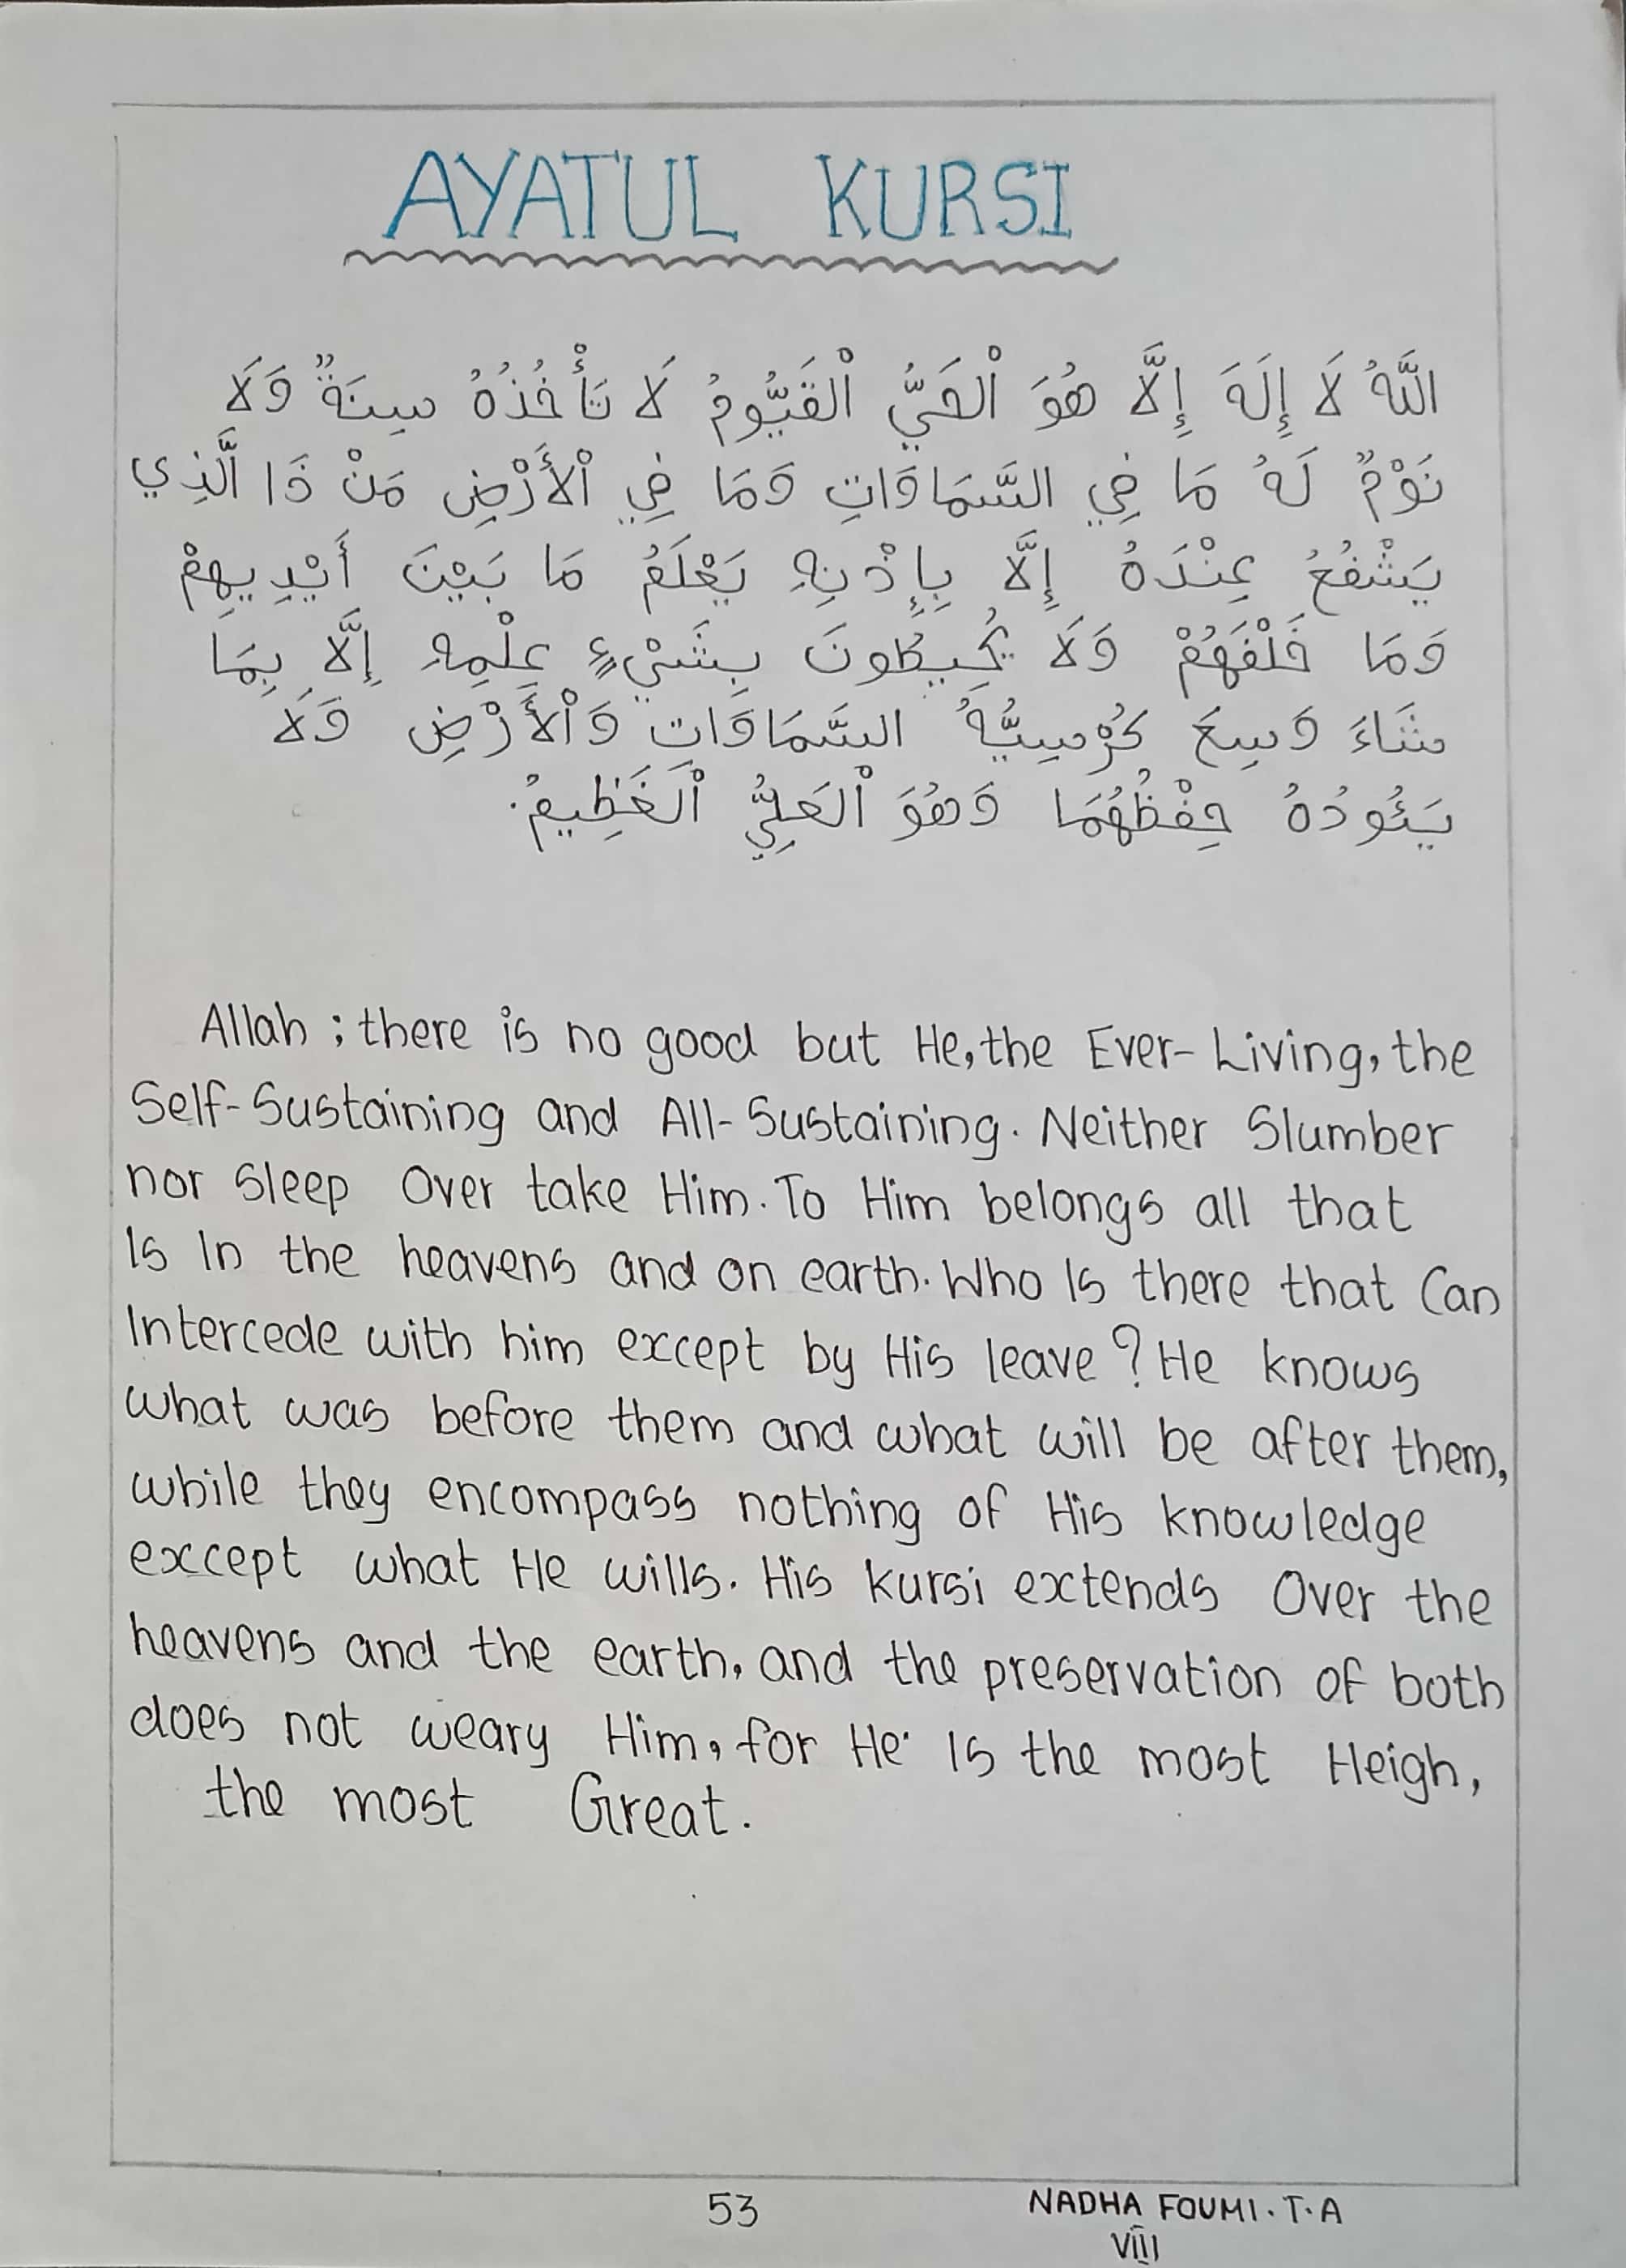 AYATUL KURSI
اللَّهُ لَا إِلَهَ إِلَّا هُوَ الْحَيُّ الْقَيُّومُ لَا تَأْخُذُهُ سِنَةٌ وَلَا
نَوْمٌ لَهُ مَا فِي السَّمَاوَاتِ وَمَا فِي الْأَرْضِ مَنْ ذَا الَّذِي
يَشْفَعُ عِنْدَهُ إِلَّا بِإِذْنِهِ يَعْلَمُ مَا بَيْنَ أَيْدِيهِمْ
وَمَا خَلْفَهُمْ وَلَا يُحِيطُونَ بِشَيْءٍ عِلْمِهِ إِلَّا بِمَا
شَاءَ وَسِعَ كُرْسِيُّهُ السَّمَاوَاتِ وَالْأَرْضِ وَلَا
يَئُودُهُ حِفْظُهُمَا وَهُوَ الْعَلِيُّ الْعَظِيمُ.
Allah ; there is no good but He, the Ever- Living, the
Self-Sustaining and All-Sustaining. Neither Slumber
nor Sleep Over take Him. To Him belongs all that
Is In the heavens and on earth. Who Is there that Can
Intercede with him except by His leave ? He knows
what was before them and what will be after them,
while they encompass nothing of His knowledge
except what He wills. His kursi extends Over the
heavens and the earth, and the preservation of both
does not weary Him, for He Is the most Heigh,
the most Great.
53
NADHA FOUMI. T. A
VIII